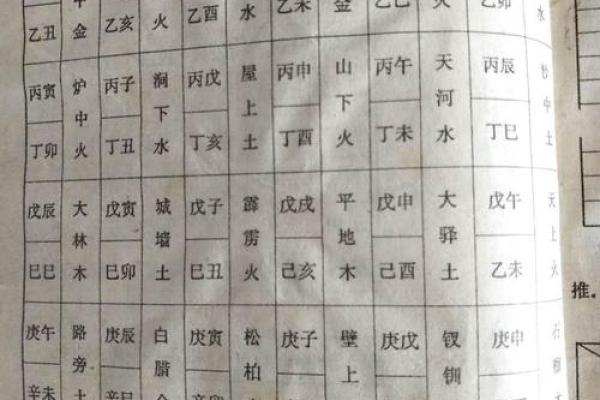 乙丑 金 乙亥 火 乙酉 水 乙未 金 乙卯 水
丙寅 炉中火 丙子 涧下水 丙戌 屋上土 丙申 山下火 丙午 天河水 丙辰 沙中土
丁卯 丁丑 丁亥 丁酉 丁未 丁巳
戊辰 大林木 戊寅 城墙土 戊子 霹雳火 戊戌 平地木 戊申 大驿土 戊午 天上火
巳巳 巳卯 巳丑 己亥 己酉 乙未
庚午 路旁土 庚辰 白腊 庚寅 松柏 庚子 壁上 庚戌 钗钏 庚申 石榴
辛未 辛巳 辛卯
推。